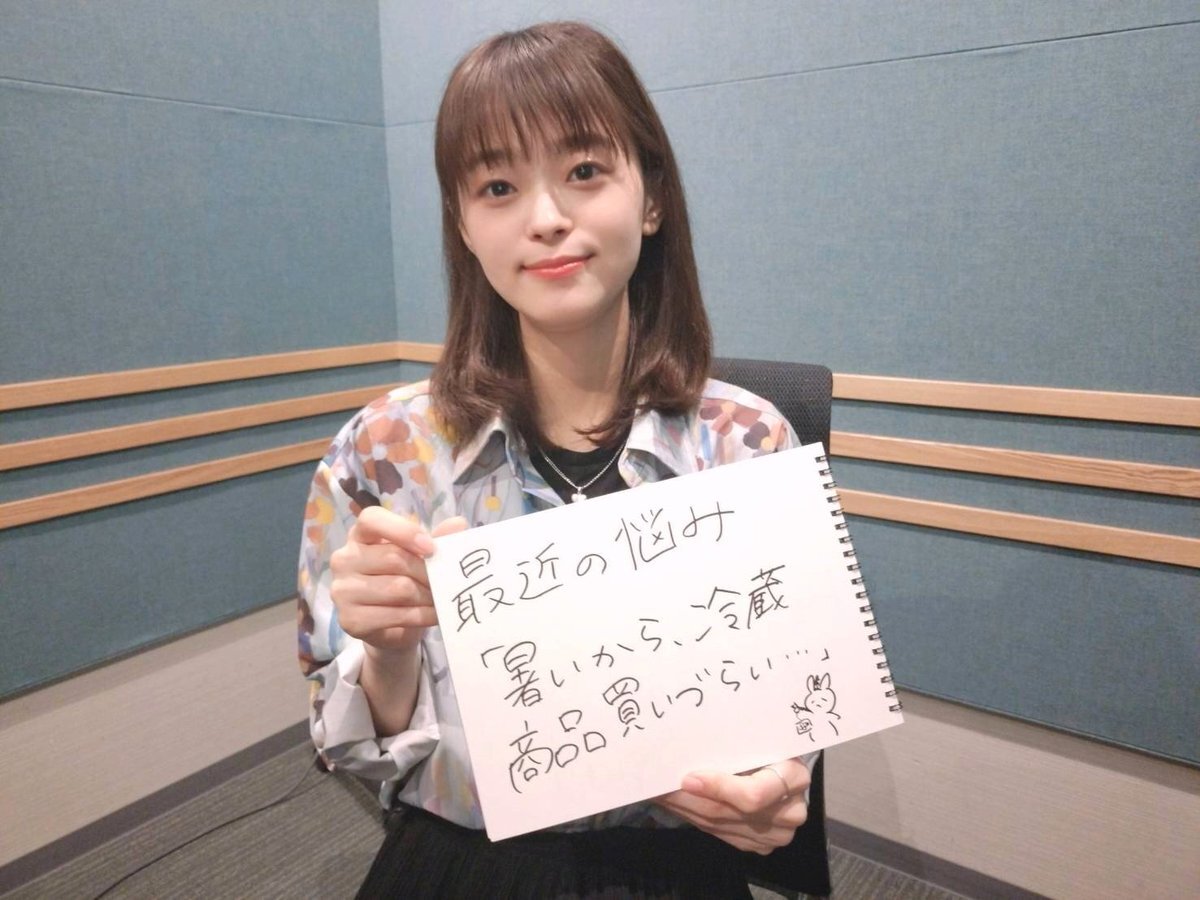 最近の悩み
「暑いから、冷蔵
商品買いづらい…」